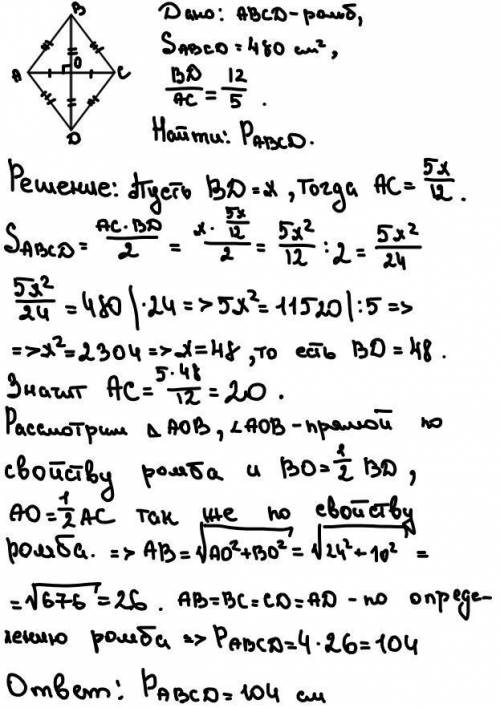 B
A
O
C
D
Дано: ABCD-ромб,
S_ABCD = 480 см²,
BD/AC = 12/5.
Найти: P_ABCD.
Решение: Пусть BD = x, тогда AC = 5x/12.
S_ABCD = AC·BD/2 = x·5x/12/2 = 5x²/12 : 2 = 5x²/24
5x²/24 = 480 |·24 => 5x² = 11520 |:5 =>
=> x² = 2304 => x = 48, то есть BD = 48.
Значит AC = 5·48/12 = 20.
Рассмотрим △AOB, ∠AOB - прямой по
свойству ромба и BO = 1/2 BD,
AO = 1/2 AC так же по свойству
ромба. => AB = √AO²+BO² = √24²+10² =
= √676 = 26. AB=BC=CD=AD - по опреде-
лению ромба => P_ABCD = 4·26 = 104
Ответ: P_ABCD = 104 см